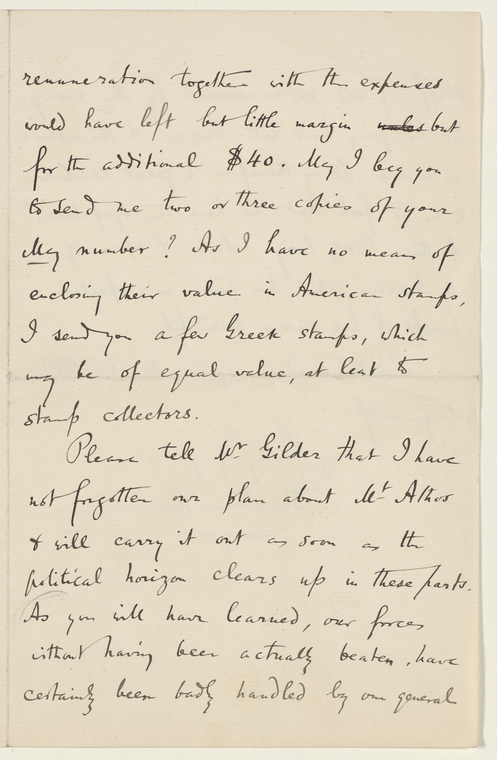 remuneration together with the expenses
would have left but little margin but
for the additional $40. May I beg you
to send me two or three copies of your
May number? As I have no means of
enclosing their value in American stamps,
I send you a few Greek stamps, which
may be of equal value, at least to
stamp collectors.
Please tell Mr Gilder that I have
not forgotten our plan about Mt Athos
& will carry it out as soon as the
political horizon clears up in these parts.
As you will have learned, our forces
without having been actually beaten, have
certainly been badly handled by our general